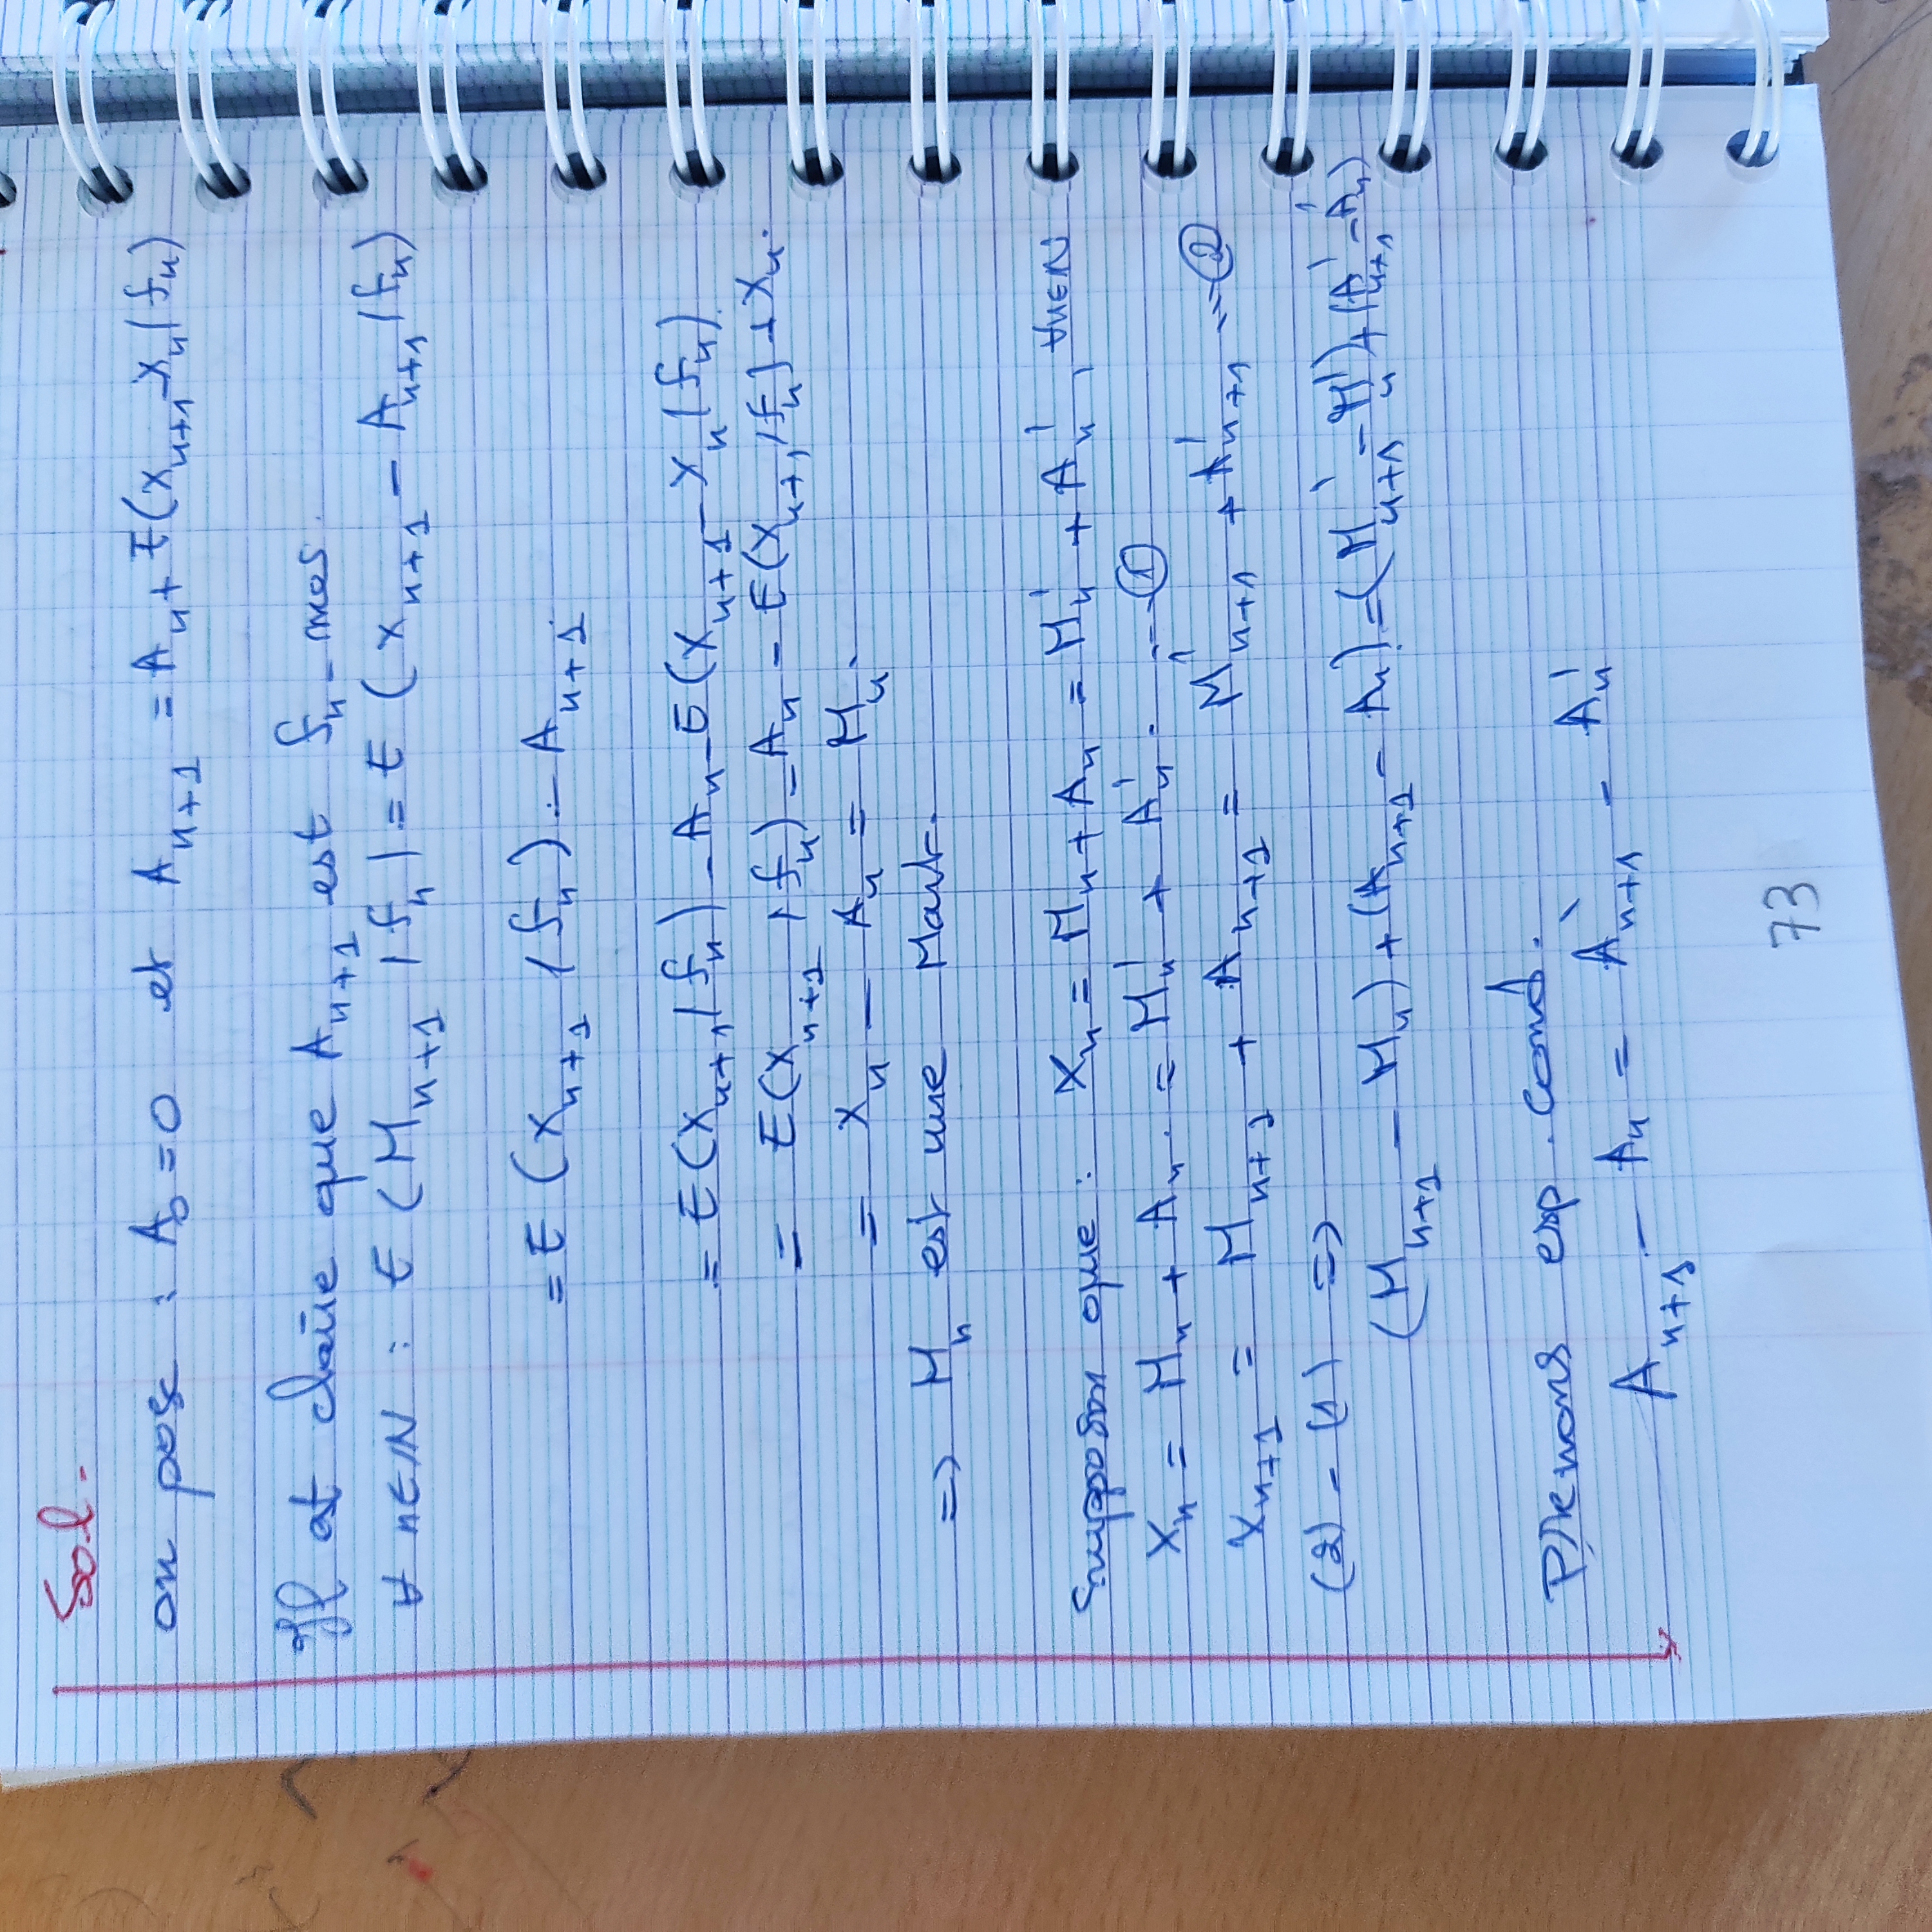 Sol.
on pose : A_0 = 0 et A_{n+1} = A_n + E(X_{n+1} - X_n / f_n)
Il at claire que A_{n+1} est f_n - mes.
∀ n∈IN : E (M_{n+1} / f_n) = E (X_{n+1} - A_{n+1} / f_n)
= E (X_{n+1} / f_n) - A_{n+1}.
= E(X_{n+1} / f_n) - A_n - E(X_{n+1} - X_n / f_n).
= E(X_{n+1} / f_n) - A_n - E(X_{n+1} / f_n) + X_n.
= X_n - A_n = M_n.
=> M_n est une Mart.
Supposon que : X_n = M_n + A_n = M'_n + A'_n, ∀n∈N
X_n = M_n + A_n. = M'_n + A'_n. -- ①
X_{n+1} = M_{n+1} + A_{n+1} = M'_{n+1} + A'_{n+1} -- ②
(2) - (1) =>
(M_{n+1} - M_n) + (A_{n+1} - A_n) = (M'_{n+1} - M'_n) + (A'_{n+1} - A'_n)
Prenons esp. cond.
A_{n+1} - A_n = A'_{n+1} - A'_n
73